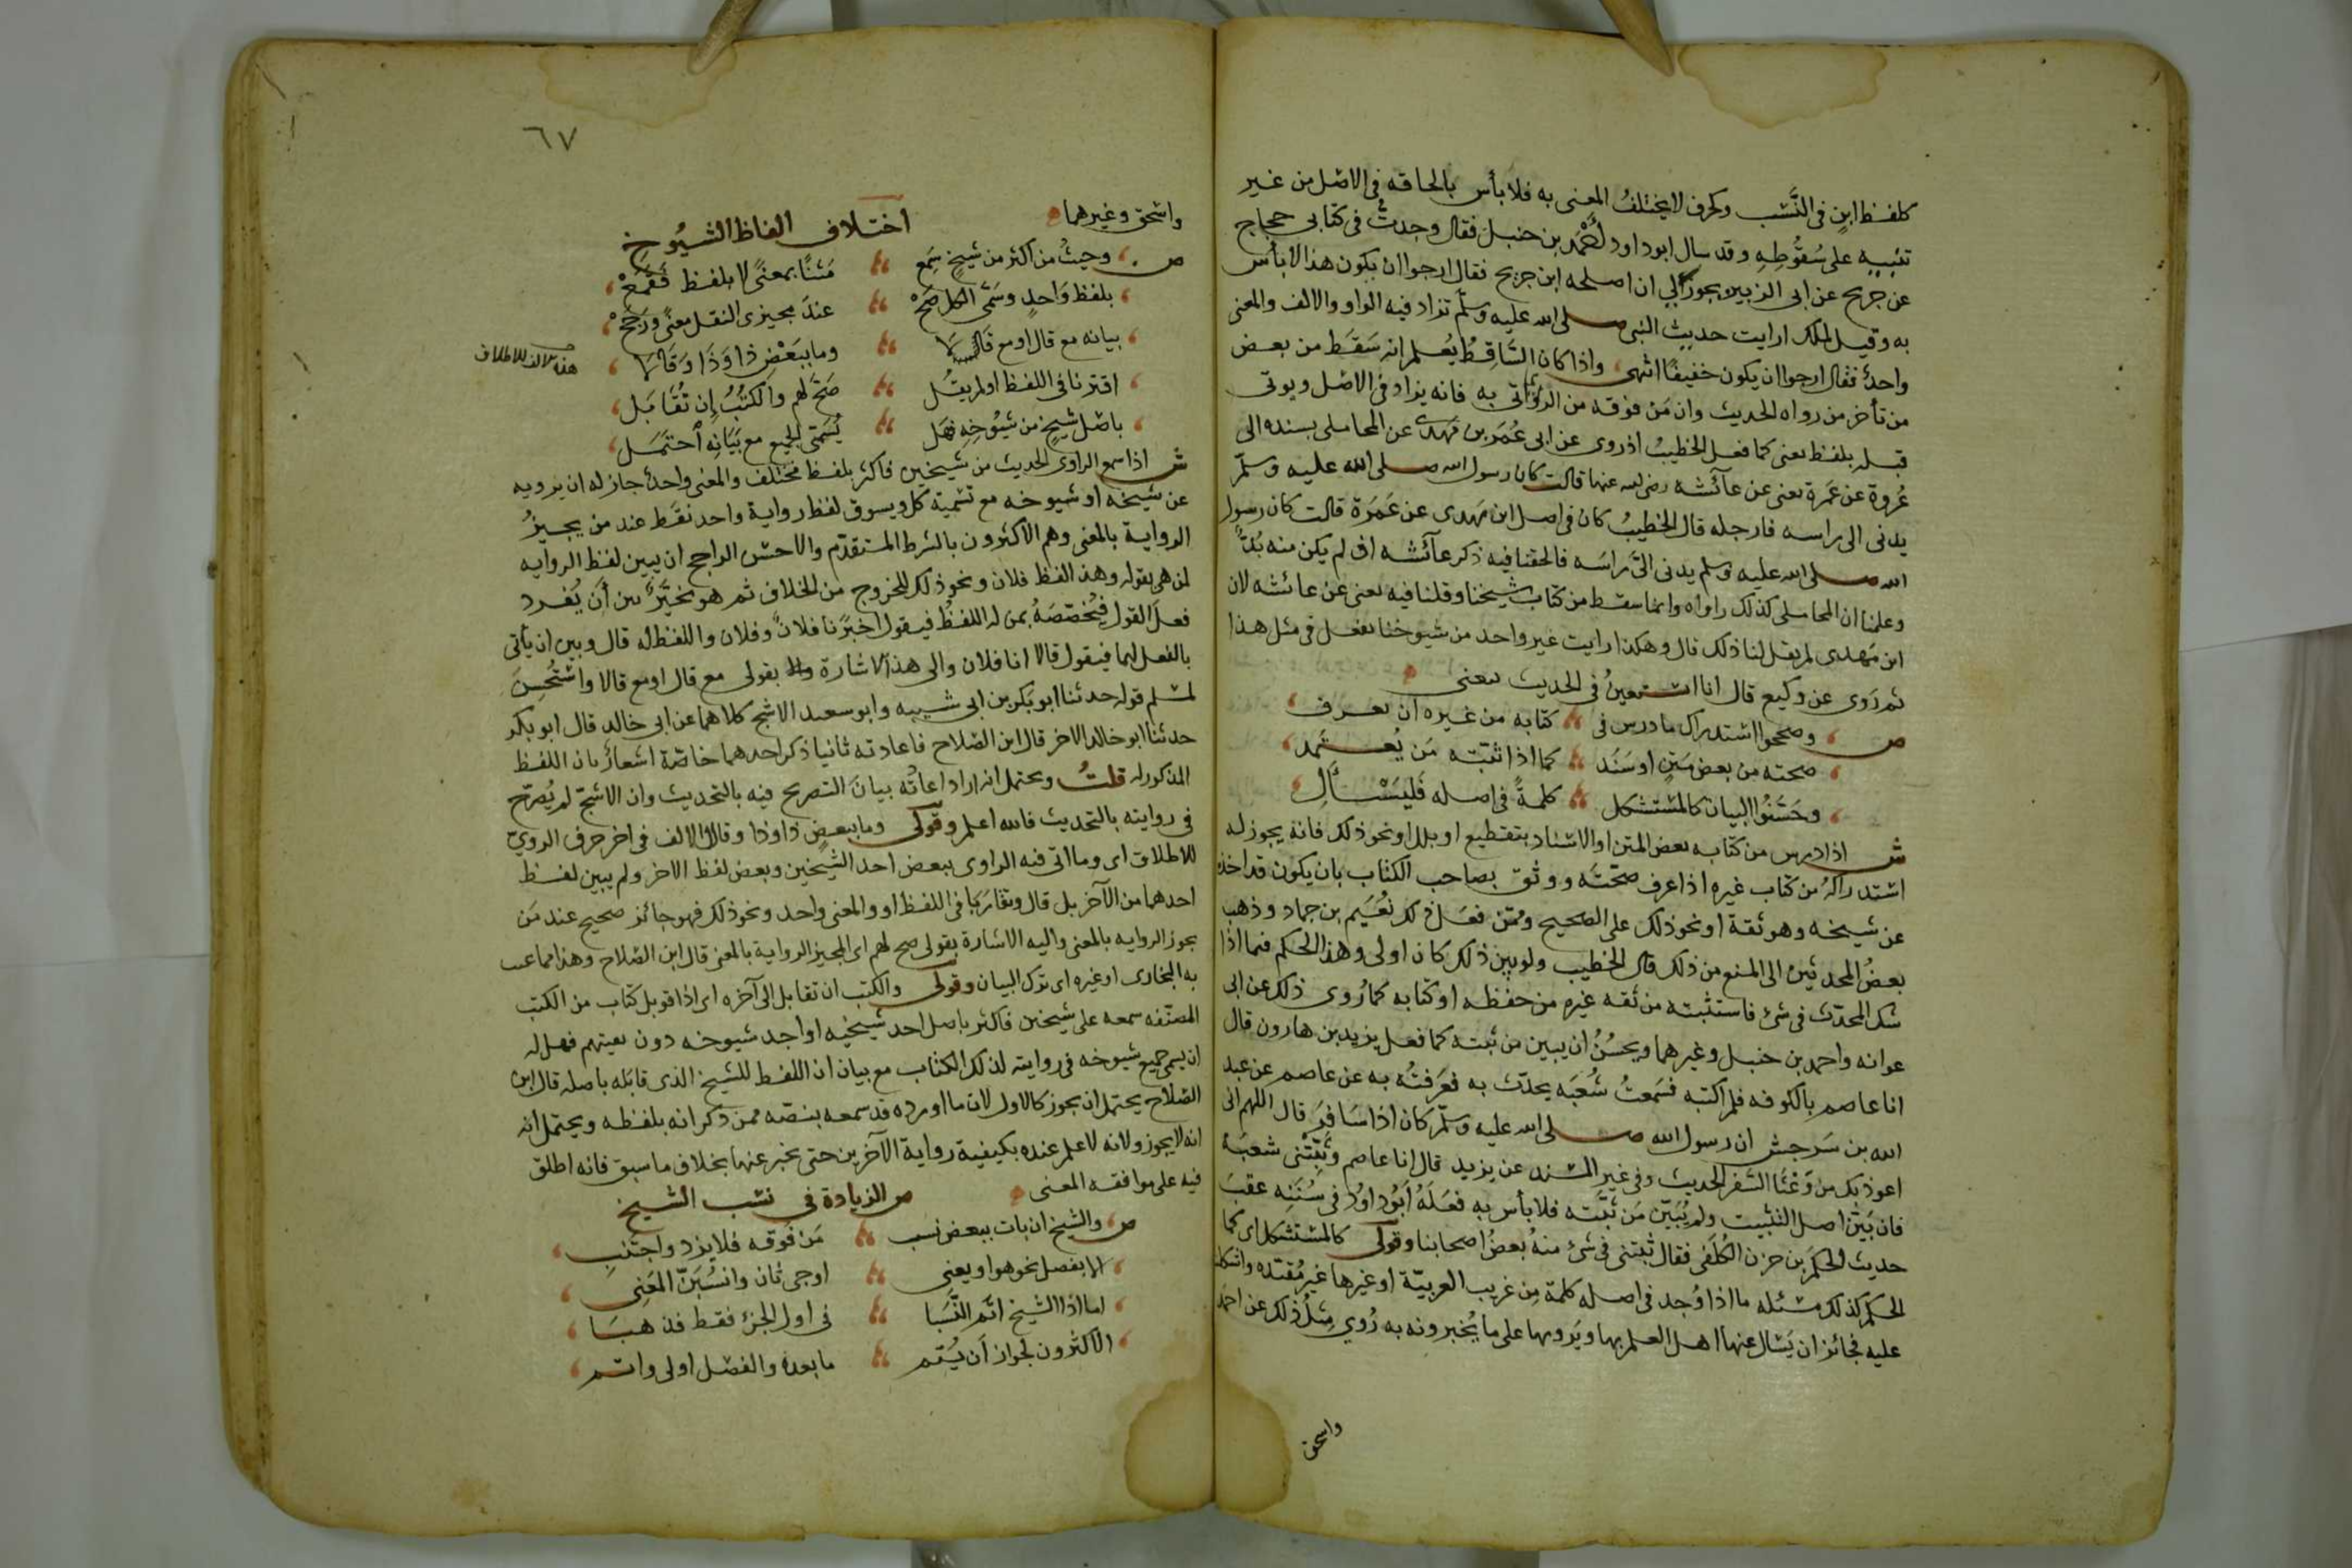 كلفظ ابنٍ فى النَّسَب وكحرف لا يختلفُ المعنى به فلا بأس بالحاقه فى الاصْل من غير
تنبيهٍ على سُقُوطِهِ وقد سال ابو داود لأحْمَد بن حنبل فقال وجدتُ فى كتابى حجاج
عن جريج عن ابى الزبير يجوز لى ان اصلحه ابن جريج فقال ارجوا ان يكون هذا لا بأس
به وقيل لملك ارايت حديث النبى صلى الله عليه وسلّم تزاد فيه الواو والالف والمعنى
واحدٌ فقال ارجوا ان يكون خفيفًا انتهى واذا كان السَّاقِطُ يُعلم انه سَقَط من بعض
من تأخر من رواه الحديث وان مَن فوقه من الرواة اتى به فانه يزاد فى الاصْل ويوتى
قبله بلفظ يعنى كما فعل الخطيبُ اذ روى عن ابى عُمَر بن مَهدى عن المحاملى بسنده الى
عُروة عن عَمرة يعنى عن عآئشه رضى الله عنها قالت كان رسول الله صلى الله عليه وسلّم
يدنى الى راسه فارجله قال الخطيبُ كان فى اصل ابن مَهدى عن عَمَرَة قالت كان رسول
الله صلى الله عليه وسلم يدنى الىَّ راسَه فالحقنا فيه ذكر عآئشه اذ لم يكن منه بُدٌّ
وعلمنا ان المحاملى كذلك راواه وانما سقط من كتاب شيخنا وقلنا فيه يعنى عن عائشه لان
ابن مَهدى لم يقل لنا ذلك قال وهكذا رايت غير واحد من شيوخنا يفعل فى مثل هذا
ثم رَوى عن وكيع قال انا استعينُ فى الحديث بيعنى
ص وصححوا استدراك ما درس فى كتابه من غيره ان يعرف
صحته من بعض مَتنٍ او سَنَد كما اذا ثبّته مَن يُعتمد
وحَسَّنُوا البيان كالمستشكل كلمةً فى اصله فَليَسْأَلِ
ش اذا درس من كتابه بعض المتن او الاسناد بتقطيع او بلل او نحو ذلك فانه يجوز له
استدراكهُ من كتاب غيره اذا عرف صحّته ووثق بصاحب الكتاب بان يكون قد اخذه
عن شيخه وهو ثقة او نحو ذلك على الصحيح وممّن فعَل ذلك نُعَيم بن حماد وذهب
بعضُ المحدثين الى المنع من ذلك قال الخطيب ولو بين ذلك كان اولى وهذا الحكم فيما اذا
شك المحدّث فى شئ فاستثبته من ثقه غيره من حفظه او كتابه كما رُوى ذلك عن ابى
عوانه واحمد بن حنبل وغيرهما ويحسُنُ ان يبين من ثبّته كما فعل يزيد بن هارون قال
انا عاصم بالكوفه فلم اكتبه فسَمعتُ شُعبَه يحدّث به فعَرَفتُه به عن عاصم عن عبد
الله بن سَرجس ان رسول الله صلى الله عليه وسلّم كان اذا سَافرَ قال اللهم انى
اعوذ بك من وَعْثَا السَّفر الحديث وفى غير المسند عن يزيد قال انا عاصم وثَبَّتْنى شعبَة
فان بَيّن اصل التثبيت ولم يُبَيّن مَن ثَبَّتَه فلا بأس به فعَلَهُ اَبُو داوُد فى سُنَنِه عقبَ
حديث الحكم بن حزن الكُلَفى فقال ثبتنى فى شئ منهُ بعضُ اصحابنا وقولى كالمستشكل اى كما
الحكم كذلك مسئله ما اذا وُجد فى اصله كلمة مِن غريب العربيّة او غيرها غير مُقيّده واشكلت
عليه فجائز ان يَسْال عنها اهل العلم بها ويَرويها على ما يُخبرونه به رُوي مِثلُ ذلك عن احمد
واسحق
٦٧
واسْحق وغيرهما
اختلاف الفاظ الشيُوخ
ص وحيثُ من اكثر من شيخٍ سَمِع مَتْنًا بمعنىً لا بلفظ فَقَنِعْ
بلفظ وَاحدٍ وسَمَّى الكل صَحّْ عندَ مجيزى النقل معنىً ورَجَحْ
بيانه مع قال او مع قَالَا وما ببَعْضِ ذا وَذَا وَقَالَا
هذه الالف للاطلاق
اقتربا فى اللفظ او لم يقُل صَحّ لهم وَالكتُبُ إن تُقَابَل
باصْل شيخٍ من شيُوخِهِ فهَل يُسَمّى الجميع مع بَيَانِه احتَمَل
ش اذا سمع الراوى الحديث من شيخين فاكثر بلفظ مختلف والمعنى واحدٌ جاز له ان يرويه
عن شيخه او شيوخه مع تسمية كل ويسوق لفظ رواية واحد فقط عند من يجيزُ
الرواية بالمعنى وهم الاكثرون بالشرط المتقدّم والاحسَن الراجح ان يبين لفظ الروايه
لمن هى بقوله وهذا لفظ فلان ونحو ذلك للخروج من الخلاف ثم هو مخَيَّرٌ بين أن يُفرد
فعلَ القول فيُخصّصَهُ بمن له اللفظُ فيقول اخبرَنا فلانٌ وفلان واللفظ له قال وبين ان يأتى
بالفعل لهما فيقول قالا انا فلان والى هذا الاشارة بقولى مع قال او مع قالا واستُحسِنَ
لمسلم قوله حدثنا ابو بَكر بن ابى شيبه وابو سعيد الاشج كلاهما عن ابى خالد قال ابو بكر
حدثنا ابو خالد الاحمر قال ابن الصّلاح فاعادته ثانيا ذكر احدهما خاصّة اشعارٌ بان اللفظ
المذكور له قلتُ ويحتمل انه اراد اعادته بيانَ التصريح فيه بالتحديث وان الاشجّ لم يُصرّح
فى روايته بالتحديث فالله اعلم وقَولى وما ببعضٍ ذا وذا وقالا الالف فى اخر حرف الروىّ
للاطلاق اى وما اتى فيه الراوى ببعض احد الشيخين وبعض لفظ الاخر ولم يبين لفظ
احدهما من الآخر بل قال وتقارَبَا فى اللفظ او والمعنى واحد ونحو ذلك فهو جائز صحيح عند مَن
يجوز الروايه بالمعنى واليه الاشارة بقولى صح لهم اى لمجيز الرواية بالمعنى قال ابن الصّلاح وهذا مما عيب
به البخارى او غيره اى ترك البيان وقولى والكتب ان تقابل الى آخره اى اذا قوبل كتاب من الكتب
المصنّفه سمعه على شيخين فاكثر باصل احد شيخيه او احد شيوخه دون بقيتهم فهل له
ان يسمى جميع شيوخه فى روايته لذلك الكتاب مع بيان ان اللفظ للشيخ الذى قابله باصله قال ابن
الصّلاح يحتمل ان يجوز كالاول لان ما اورده قد سمعه بنصّه ممن ذكر انه بلفظه ويحتمل انه
انه لا يجوز ولانه لا علم عنده بكيفية رواية الآخرين حتى يخبر عنها بخلاف ما سبق فانه اطلق
فيه على موافقه المعنى
ص الزيادة فى نسَب الشيخ
ص والشيخ ان يات ببعض نَسَب مَن فوقه فلا يزد واجتنب
الا بفصل نحو هوا ويعنى اوجئ بان وانسُبَنّ المَعْنى
اما اذا الشيخ اتَم النَّسَبَا فى اول الجزء فقط فذهبَا
الاكثرون لجواز أن يُتم ما بعده والفصْل اولى واتم